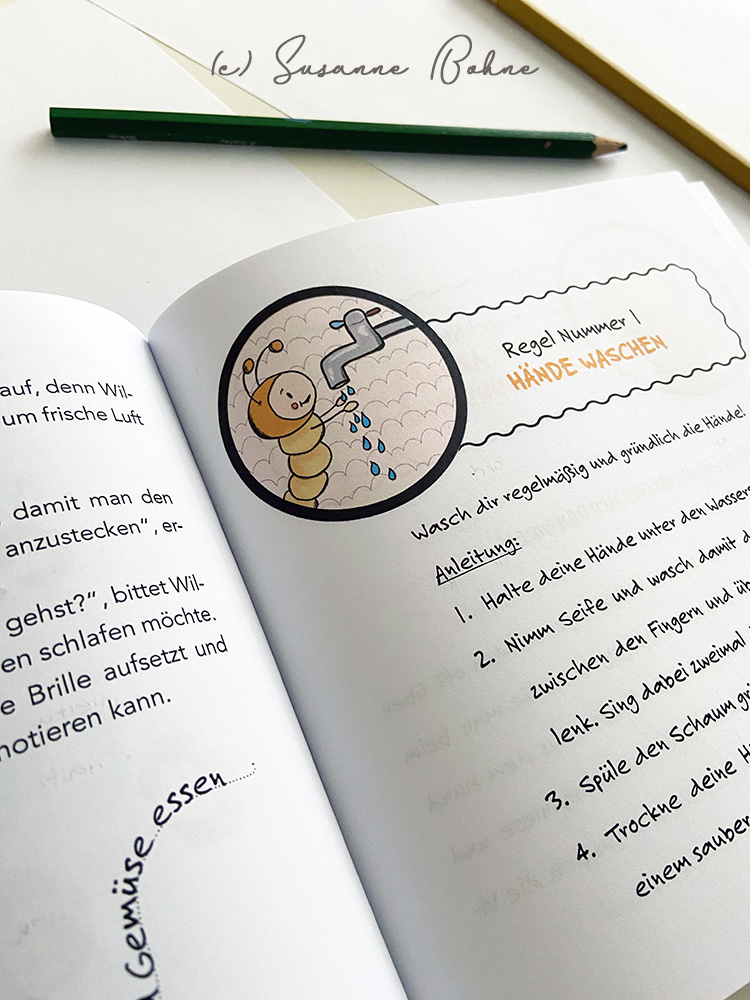 (c) Susanne Bohne
auf, denn Wil-
um frische Luft
damit man den
anzustecken“, er-
gehst?“, bittet Wil-
en schlafen möchte.
e Brille aufsetzt und
notieren kann.
Gemüse essen
Regel Nummer 1
HÄNDE WASCHEN
Wasch dir regelmäßig und gründlich die Hände!
Anleitung:
1. Halte deine Hände unter den Wassers
2. Nimm Seife und wasch damit d
zwischen den Fingern und üb
lenk. Sing dabei zweimal
3. Spüle den Schaum gr
4. Trockne deine H
einem sauber